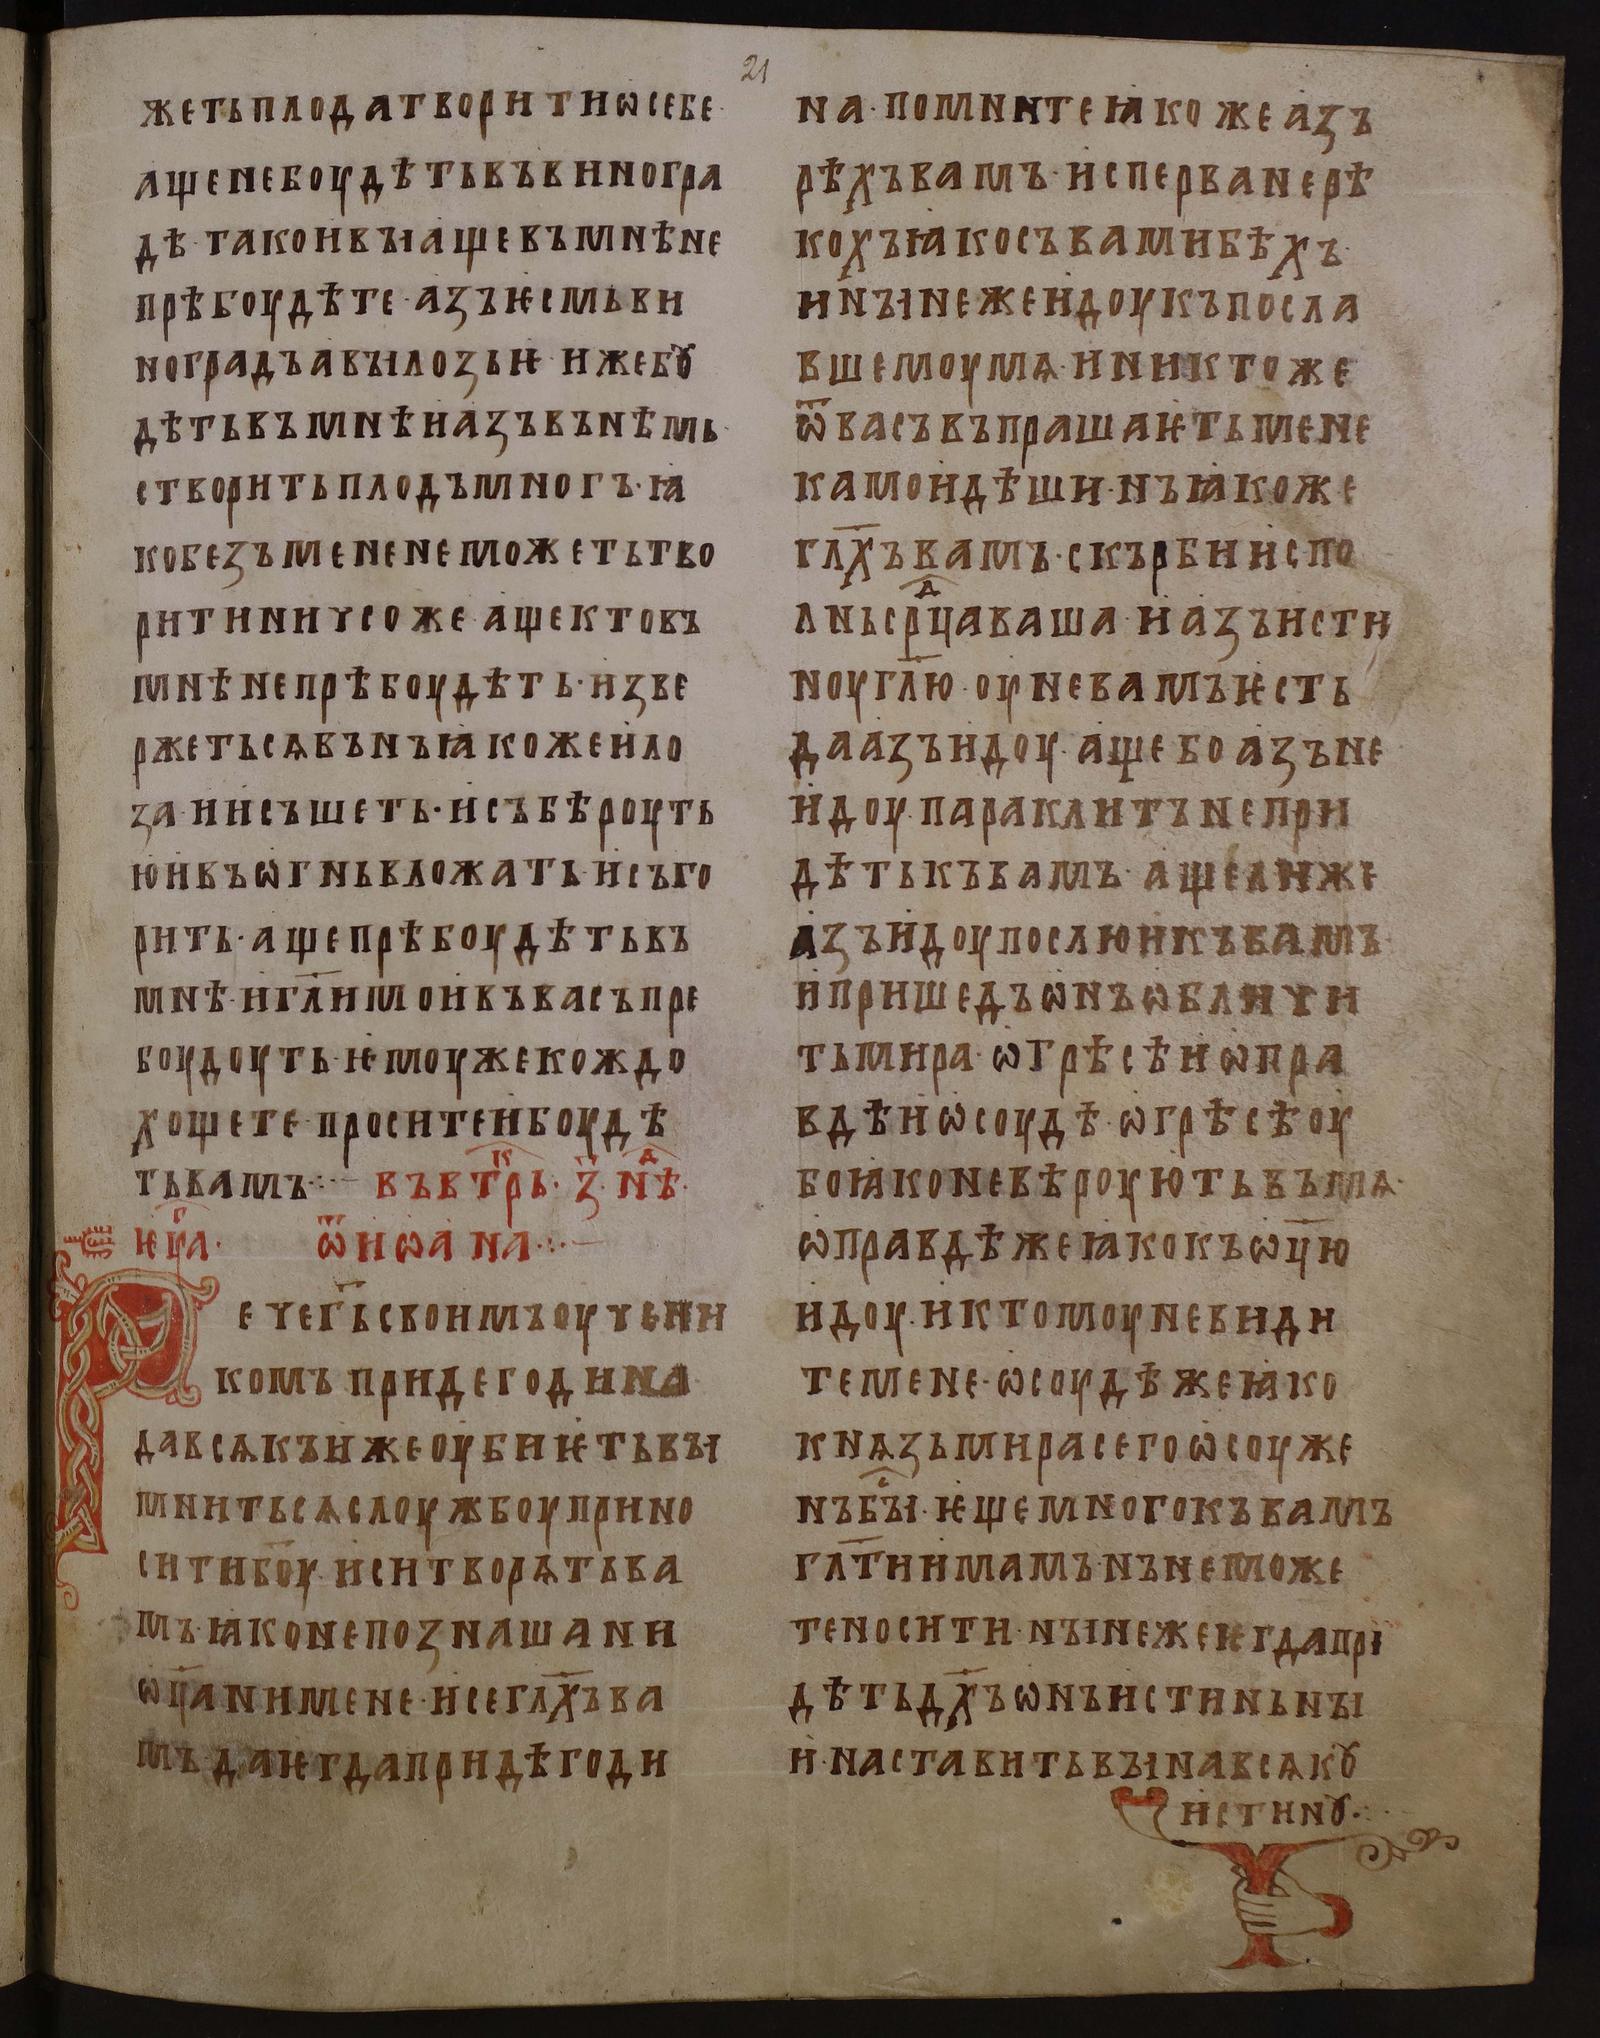 21
жетьплодатворитиѡсебе·
ащенебоудѣтьвъвиногра
дѣ·такоивъıащевъмнѣне
прѣбоудѣте·азъѥсмьви
ноградъавъıлозьѥ·ижебꙋ
дѣтьвъмнѣиазъвънѣмь·
створитьплодъмногъ·ꙗ
кобезъмененеможетьтво
ритиничсоже·ащектовъ
мнѣнепрѣбоудѣть·изве
ржетьсѧвънъꙗкожеило
за·иисъшеть·исъбѣроуть
юивъѡгньвложать·исъго
рить·ащепрѣбоудѣтьвъ
мнѣ·игл҃имоивъвасъпре
боудоуть·ѥмоужекождо
хощете·проситеибоудѣ
тьвамъ·:· въвтр҇ьⷦ·з҃·нⷣѣ·
Ѥ ѥⷢуⷢа· ѿиѡана·:·
Р ечег҃ьсвоимъоучени
комъ·придегодина
давсѧкъижеоубиѥтьвъı
мнитьсѧслоужбоуприно
ситиб҃оу·иситворѧтьва
мъ·ꙗконепознашани
ѡц҃анимене·исеглх҃ъва
мъ·даѥгдапридѣгоди
на·помнитеꙗкожеазъ
рѣхъвамъ·испрьванерѣ
кохъꙗкосъвамибѣхъ·
инъıнежеидоукъпосла
вшемоумѧ·иниктоже
ѿвасъвъпрашаѥтьмене
камоидѣши·нъꙗкоже
глх҃ъвамъ·скърбииспо
лньсрⷣцаваша·иазъисти
ноугл҃ю·оуневамъѥсть
даазъидоу·ащебоазъне
идоу·параклитънепри
дѣтькъвамъ·ащелиже
азъидоупослюикъвамъ·
ипришедъѡнъѡбличи
тьмира·ѡгрѣсѣиѡпра
вдѣиѡсоудѣ·ѡгрѣсѣоу
боꙗконевѣроуютьвъмѧ·
ѡправдѣжеꙗкокъѡц҃ю
идоу·иктомоуневиди
темене·ѡсоудѣжеꙗко
кнѧзьмирасегоѡсоуже
нъбⷭъı·ѥщемногокъвамъ
глт҃иимамъ·нънеможе
теносити·нъıнежеѥгдапрі
дѣтьдх҃ъѡнъистиньнъı
и·наставитьвъıнавсѧкꙋ
истинꙋ·:·